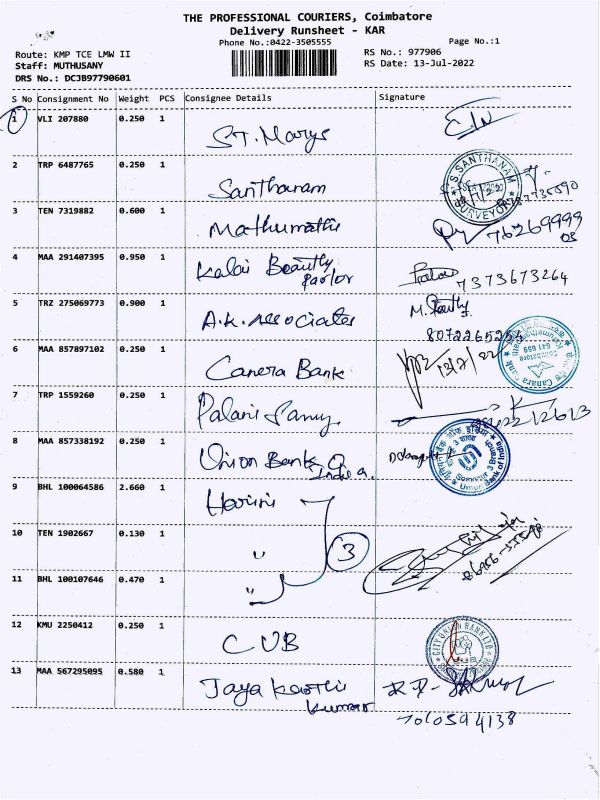 THE PROFESSIONAL COURIERS, Coimbatore
Delivery Runsheet - KAR
Phone No.:0422-3505555
Page No.:1
Route: KMP TCE LMW II
RS No.: 977906
Staff: MUTHUSANY
RS Date: 13-Jul-2022
DRS No.: DCJB97790601
S No Consignment No Weight PCS Consignee Details Signature
1 VLI 207880 0.250 1 ST. Marys
2 TRP 6487765 0.250 1 Santhanam
S. SANTHANAM
SURVEYOR
3 TEN 7319882 0.600 1 Mathumathi 76269999
05
4 MAA 291407395 0.950 1 Kalai Beautly
Parlor 7373673264
5 TRZ 275069773 0.900 1 A.K. Associates M.
8072265254
6 MAA 857897102 0.250 1 Canera Bank 13/7/22
Canara Bank
Coimbatore
641 659
7 TRP 1559260 0.250 1 Palani Samy
8 MAA 857338192 0.250 1 Union Bank of
India.
Union Bank of India
9 BHL 100064586 2.660 1 Harini
10 TEN 1902667 0.130 1 " 3
11 BHL 100107646 0.470 1 "
12 KMU 2250412 0.250 1 CUB
CITY UNION BANK LTD
13 MAA 567295095 0.580 1 Jaya Karthi
Kumar
7010594138